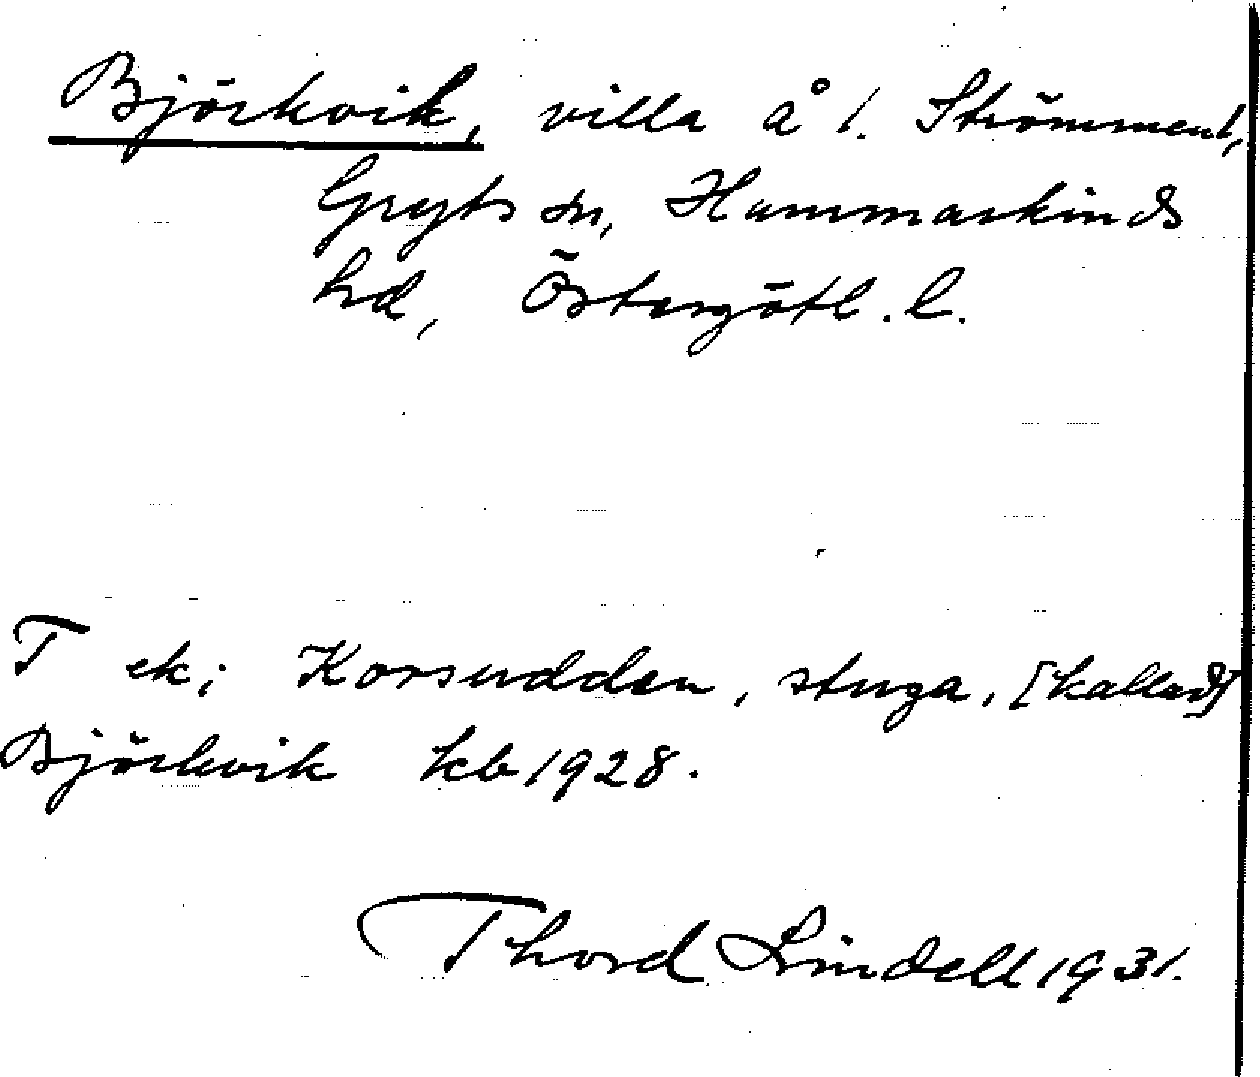 Björkvik, villa å 1. Strömmen 1,
Gryts sn, Hammarkinds
hd, Östergötl. l.
T ek; Korsudden, stuga, [kallad]
Björkvik kb 1928.
Thord Lindell 1931.